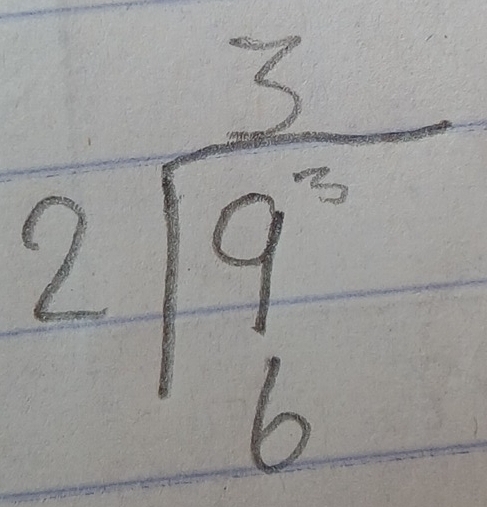 3
2 9³
6